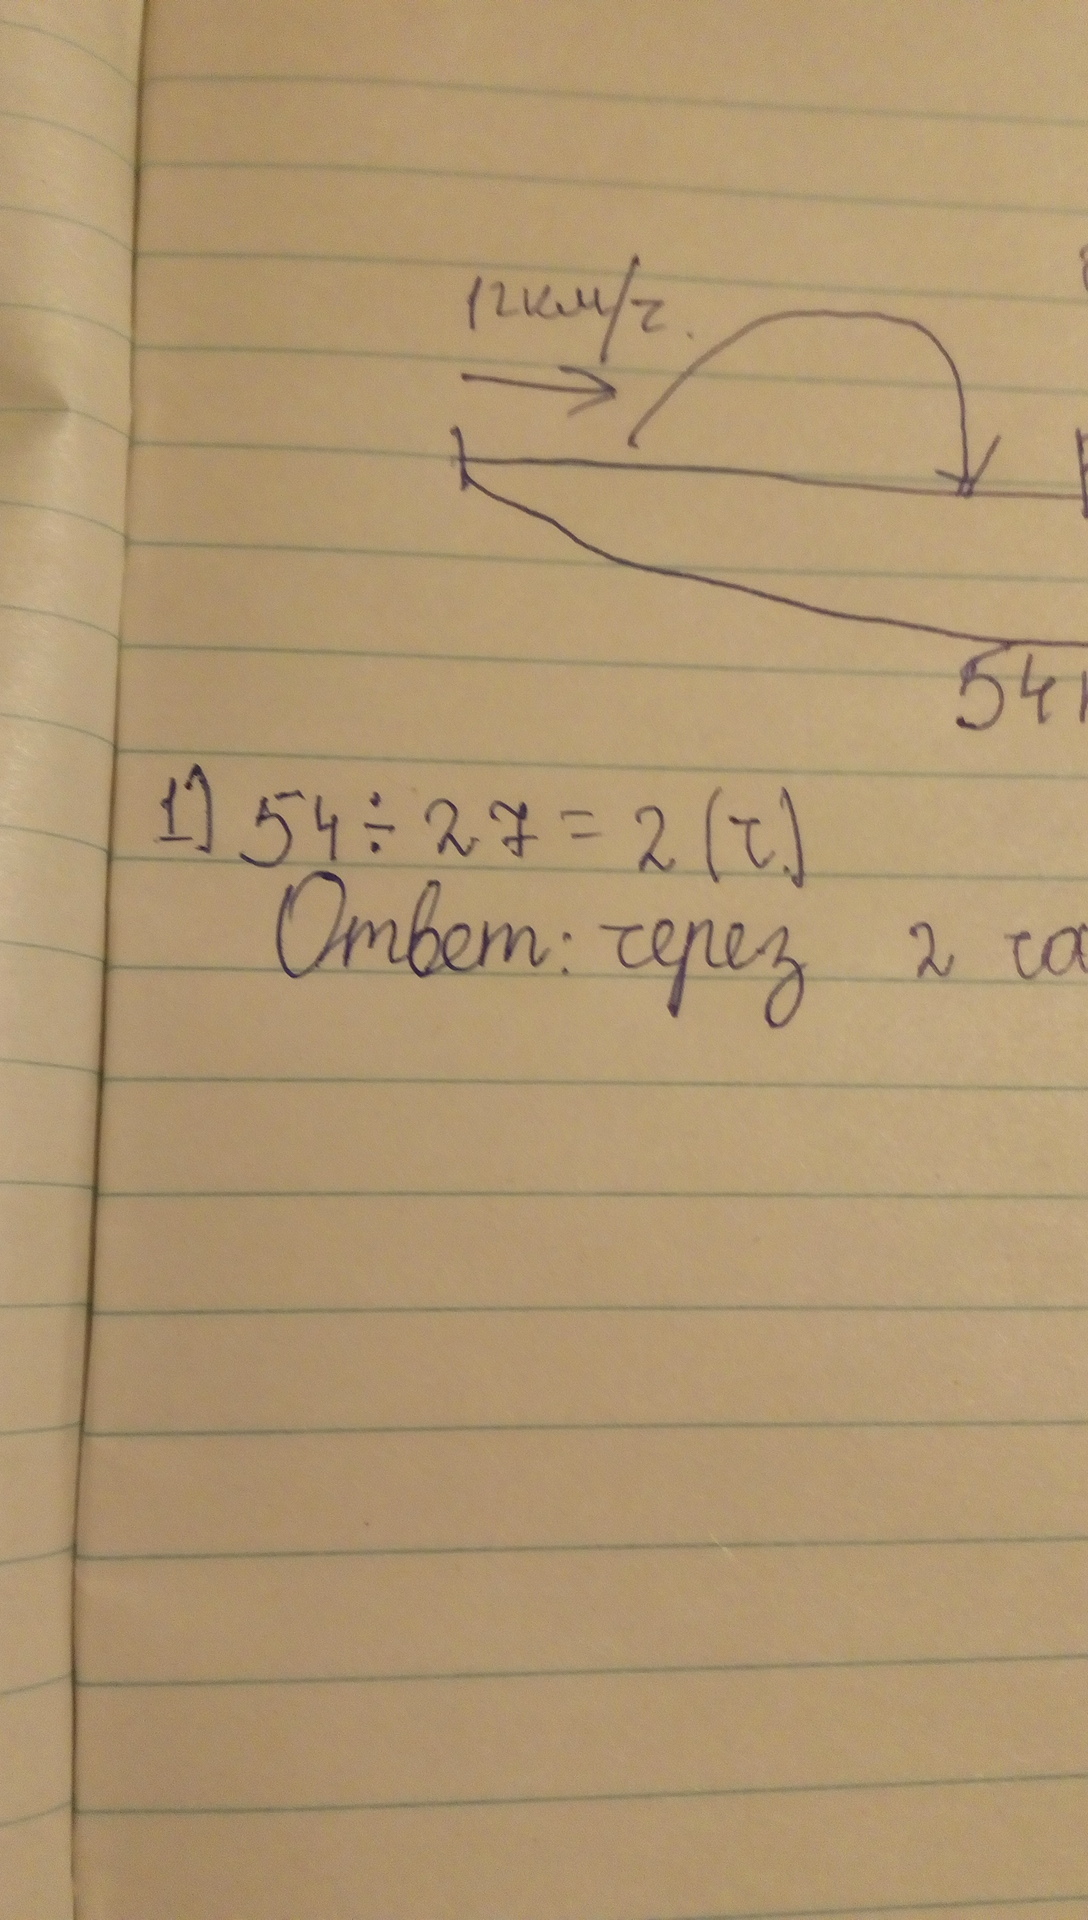 12км/ч.
54
1) 54 ÷ 27 = 2 (ч.)
Ответ: через 2 ча